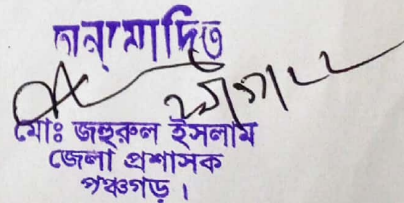 অনুমোদিত
মোঃ জহুরুল ইসলাম
জেলা প্রশাসক
পঞ্চগড়।